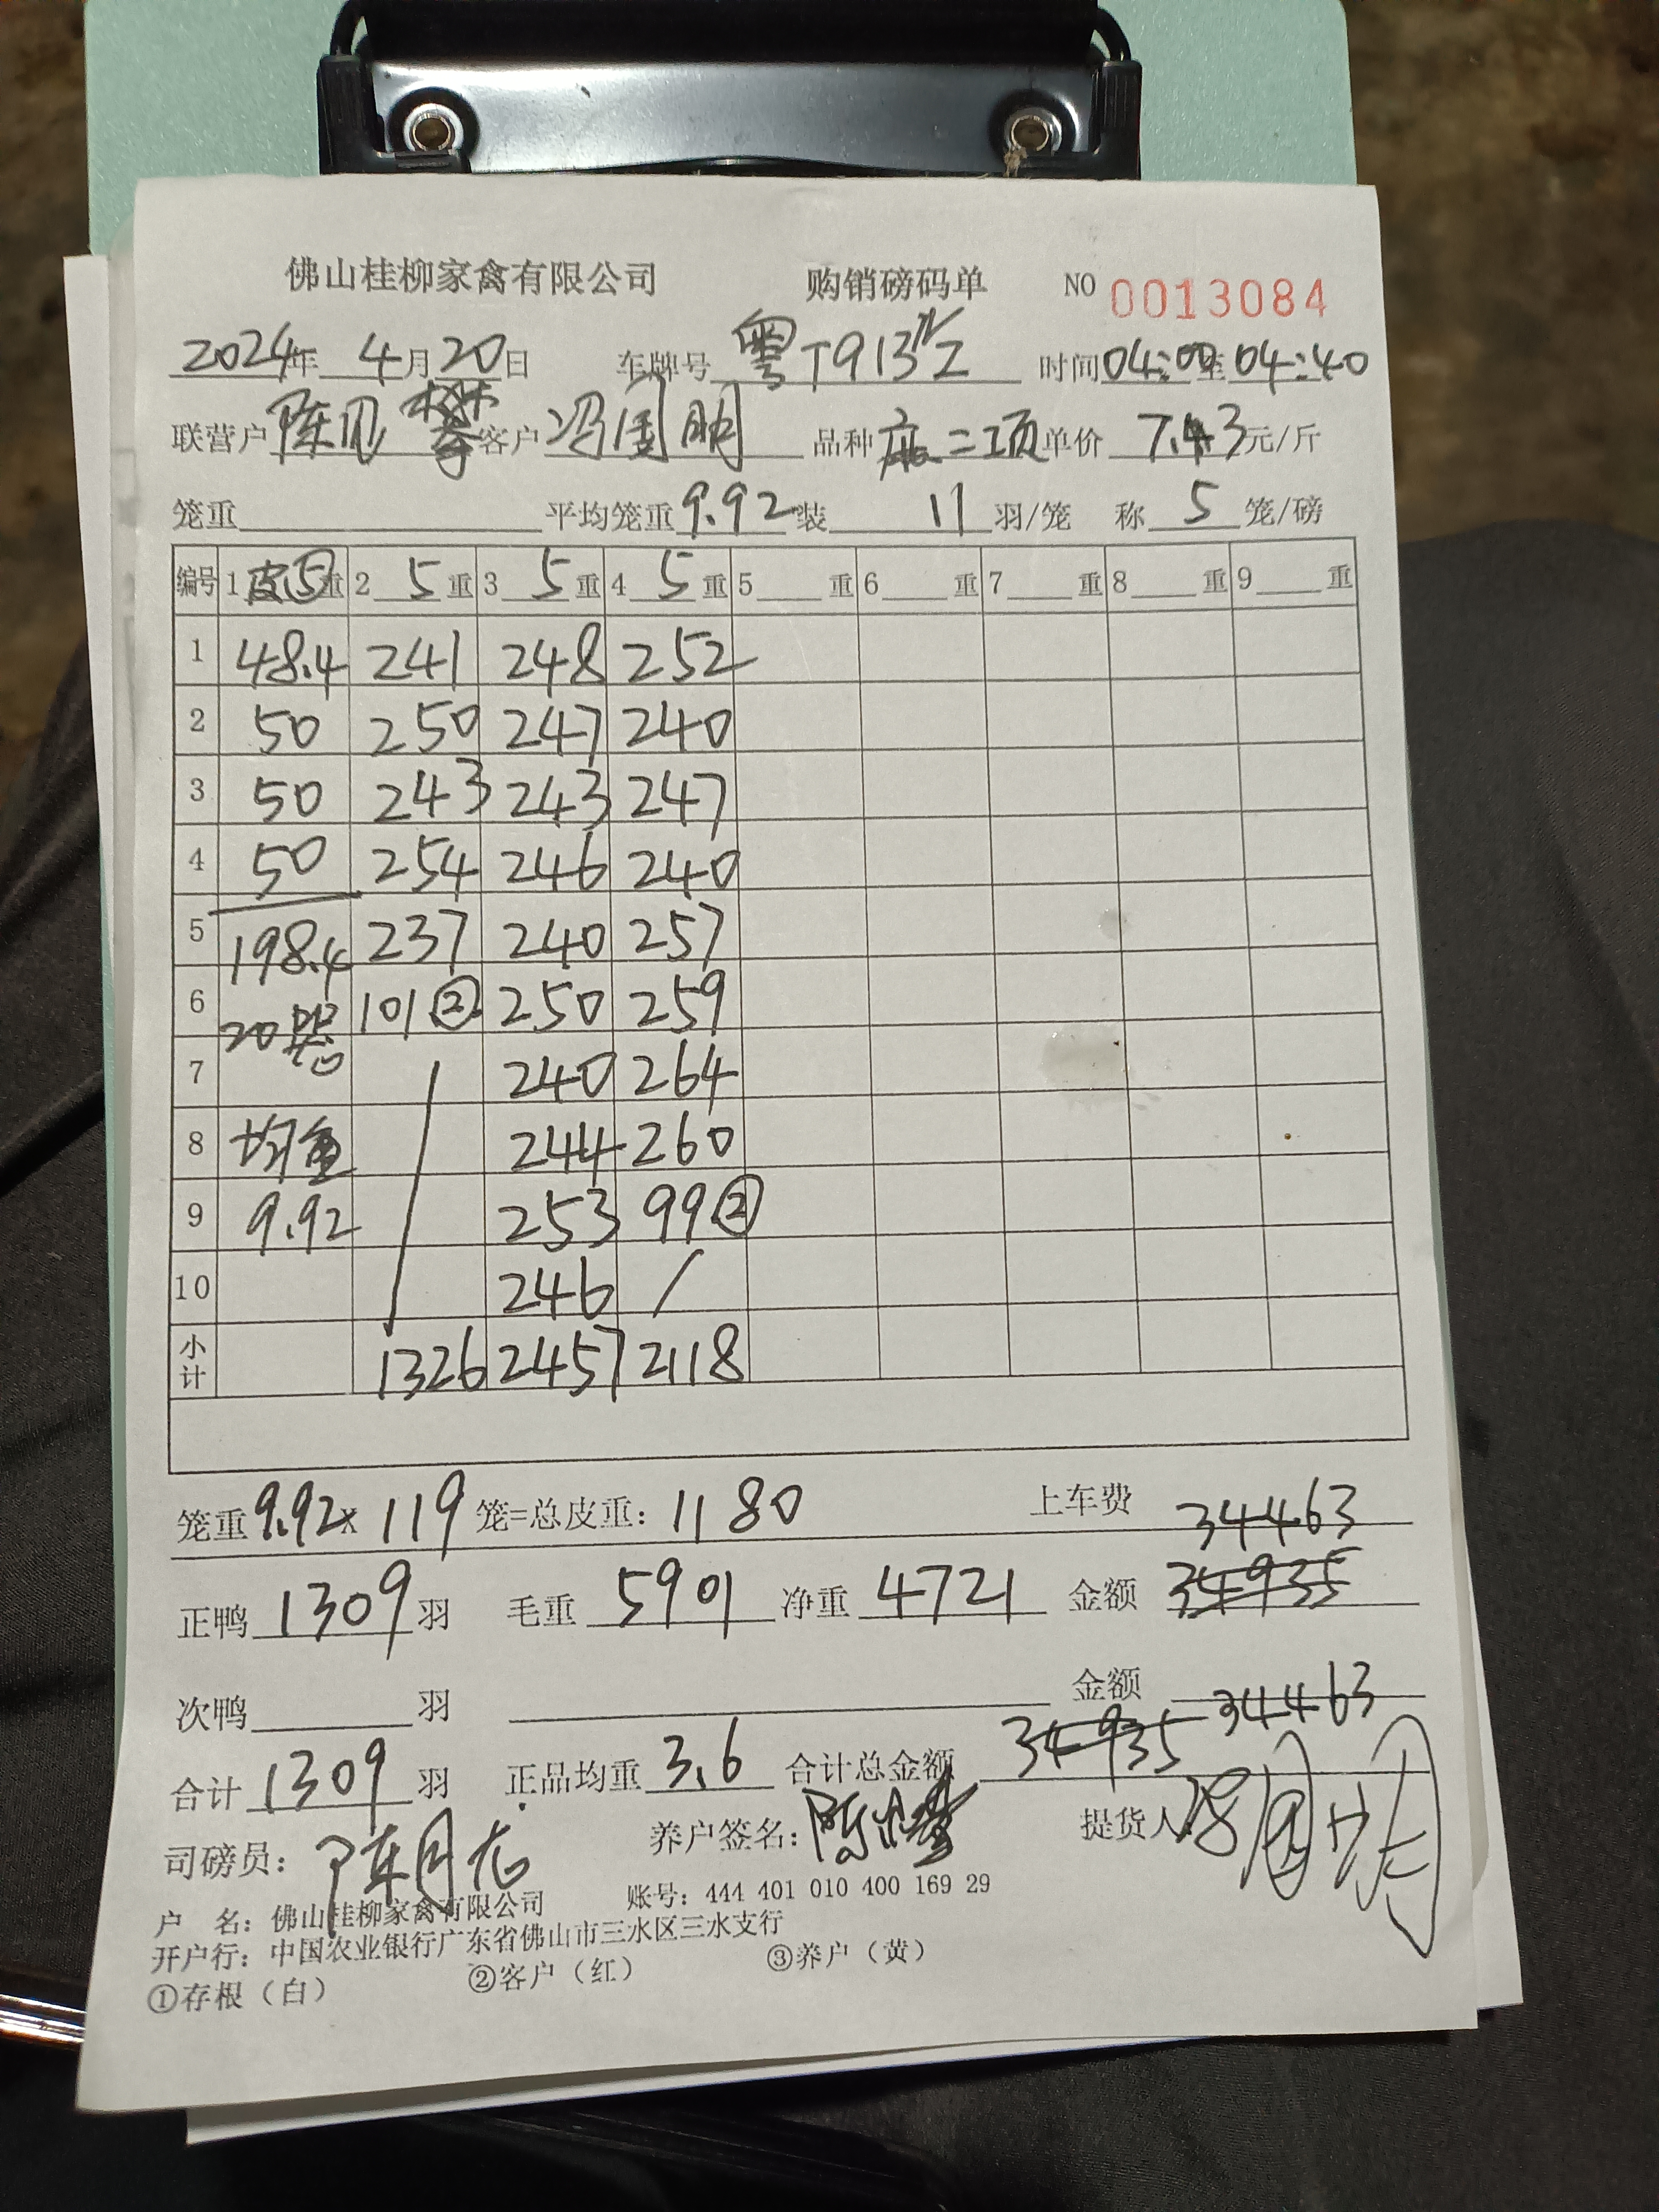 佛山桂柳家禽有限公司 购销磅码单 NO 0013084
2024年 4月20日 车牌号 粤T913 时间04:00至04:40
联营户 陈 客户 冯周明 品种 二项 单价 7.43元/斤
笼重 平均笼重9.92装 11 羽/笼 称 5 笼/磅
编号 1 皮⑤重 2 5 重 3 5 重 4 5 重 5 重 6 重 7 重 8 重 9 重
1 48.4 241 248 252
2 50 250 247 240
3 50 243 243 247
4 50 254 246 240
5 198.4 237 240 257
6 20 101② 250 259
7 240 264
8 均重 244 260
9 9.92 253 99②
10 246 /
小计 1326 2457 2118
笼重9.92× 119 笼=总皮重: 1180 上车费
34463
正鸭 1309 羽 毛重 5901 净重 4721 金额 34935
次鸭 羽 金额
合计 1309 羽 正品均重 3.6 合计总金额 34935 34463
司磅员: 陈月 养户签名: 陈 提货人 冯周明
户 名: 佛山桂柳家禽有限公司 账号: 444 401 010 400 169 29
开户行: 中国农业银行广东省佛山市三水区三水支行
①存根（白） ②客户（红） ③养户（黄）